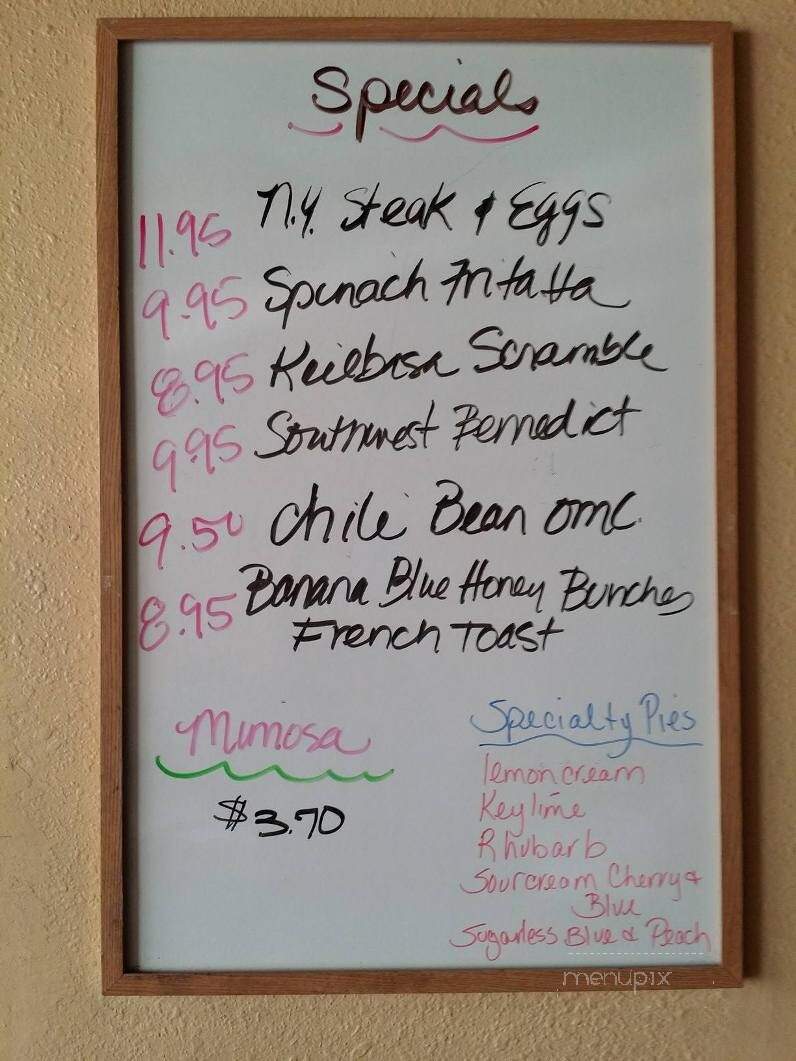 Specials
11.95 N.Y. Steak & Eggs
9.95 Spinach Fritatta
8.95 Keilbasa Scramble
9.95 Southwest Benedict
9.50 Chile Bean omc.
8.95 Banana Blue Honey Bunches
French Toast
Mimosa
$3.70
Specialty Pies
lemon cream
Key lime
Rhubarb
Sourcream Cherry &
Blue
Sugarless Blue & Peach
menupix